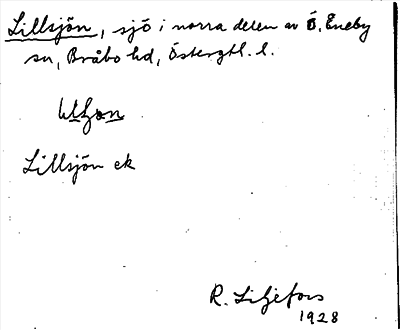 Lillsjön, sjö i norra delen av Ö. Eneby
sn, Bråbo hd, Östergtl. l.
Lillsjön ek
R. Liljefors
1928